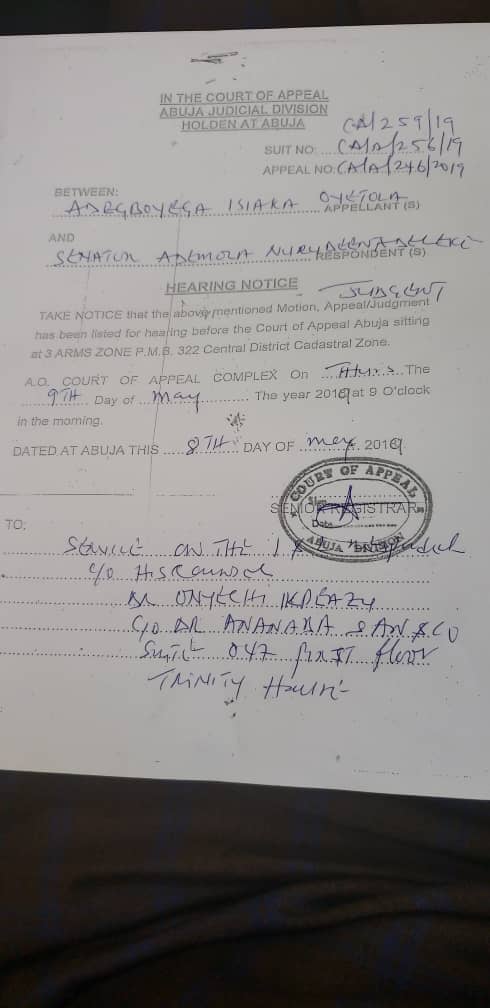 IN THE COURT OF APPEAL
ABUJA JUDICIAL DIVISION
HOLDEN AT ABUJA
CA/259/19
SUIT NO: CA/A/256/19
APPEAL NO: CA/A/246/2019
BETWEEN:
ADEGBOYEGA ISIAKA OYETOLA APPELLANT (S)
AND
SENATOR ADEMOLA NURUDEEN ADELEKE RESPONDENT (S)
HEARING NOTICE
JUDGENT
TAKE NOTICE that the above mentioned Motion, Appeal/Judgment
has been listed for hearing before the Court of Appeal Abuja sitting
at 3 ARMS ZONE P.M.B. 322 Central District Cadastral Zone.
A.O. COURT OF APPEAL COMPLEX On Thurs The
9TH Day of May The year 2019 at 9 O'clock
in the morning.
DATED AT ABUJA THIS 8TH DAY OF may 2019
COURT OF APPEAL
Sign
SENIOR REGISTRAR
Date
ABUJA DIVISION
TO:
SERVICE ON THE 1st
C/O HIS COUNSEL
DR ONYECHI IKPEAZU
C/O DR ANANABA SAN & CO
SUITE 047 FIRST floor
TRINITY House